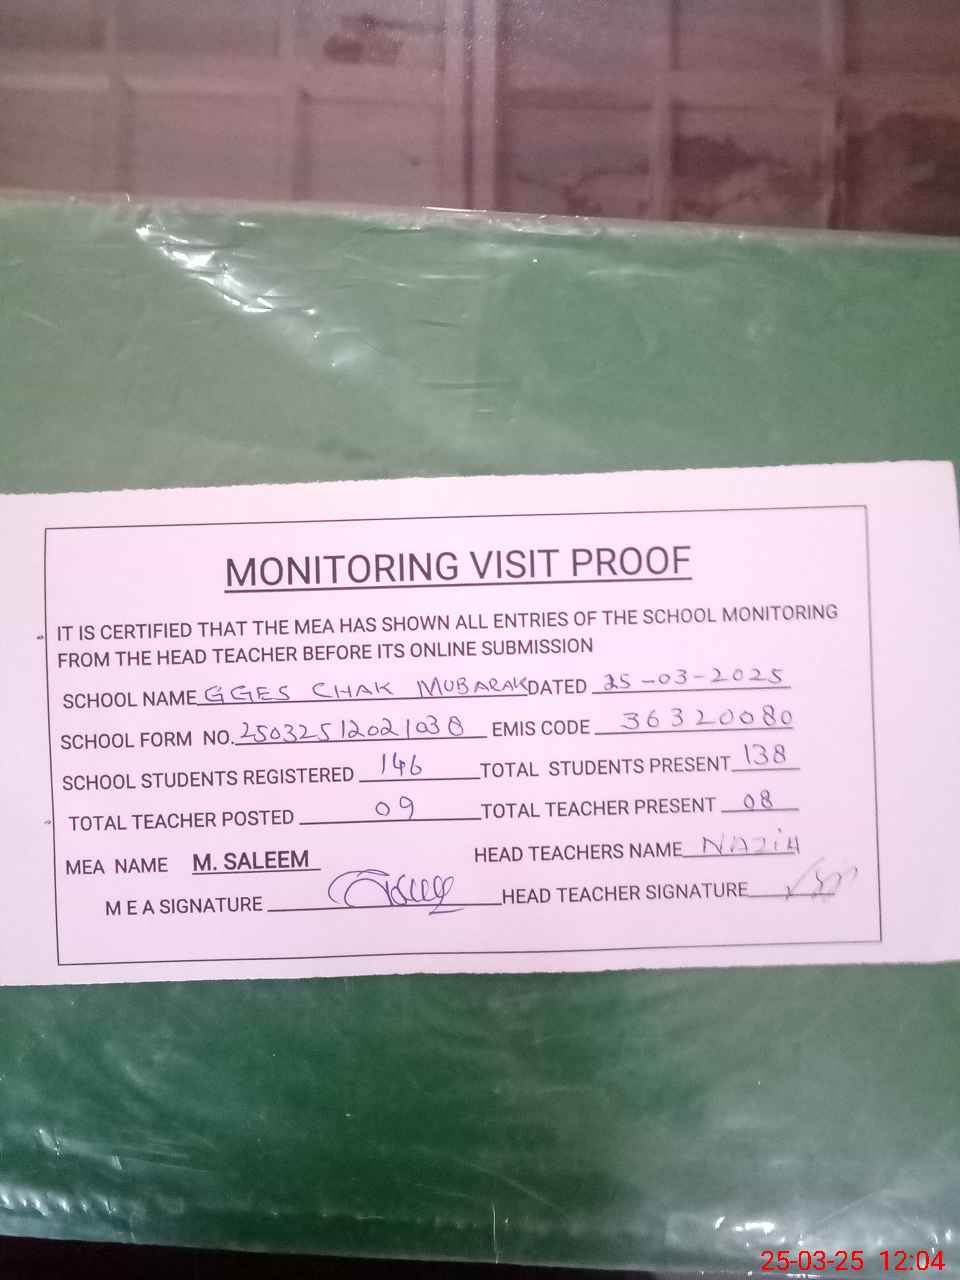 MONITORING VISIT PROOF
IT IS CERTIFIED THAT THE MEA HAS SHOWN ALL ENTRIES OF THE SCHOOL MONITORING
FROM THE HEAD TEACHER BEFORE ITS ONLINE SUBMISSION
SCHOOL NAME GGES CHAK MUBARAK DATED 25-03-2025
SCHOOL FORM NO. 25032512021038 EMIS CODE 36320080
SCHOOL STUDENTS REGISTERED 146 TOTAL STUDENTS PRESENT 138
TOTAL TEACHER POSTED 09 TOTAL TEACHER PRESENT 08
MEA NAME M. SALEEM HEAD TEACHERS NAME
M E A SIGNATURE HEAD TEACHER SIGNATURE
25-03-25 12:04